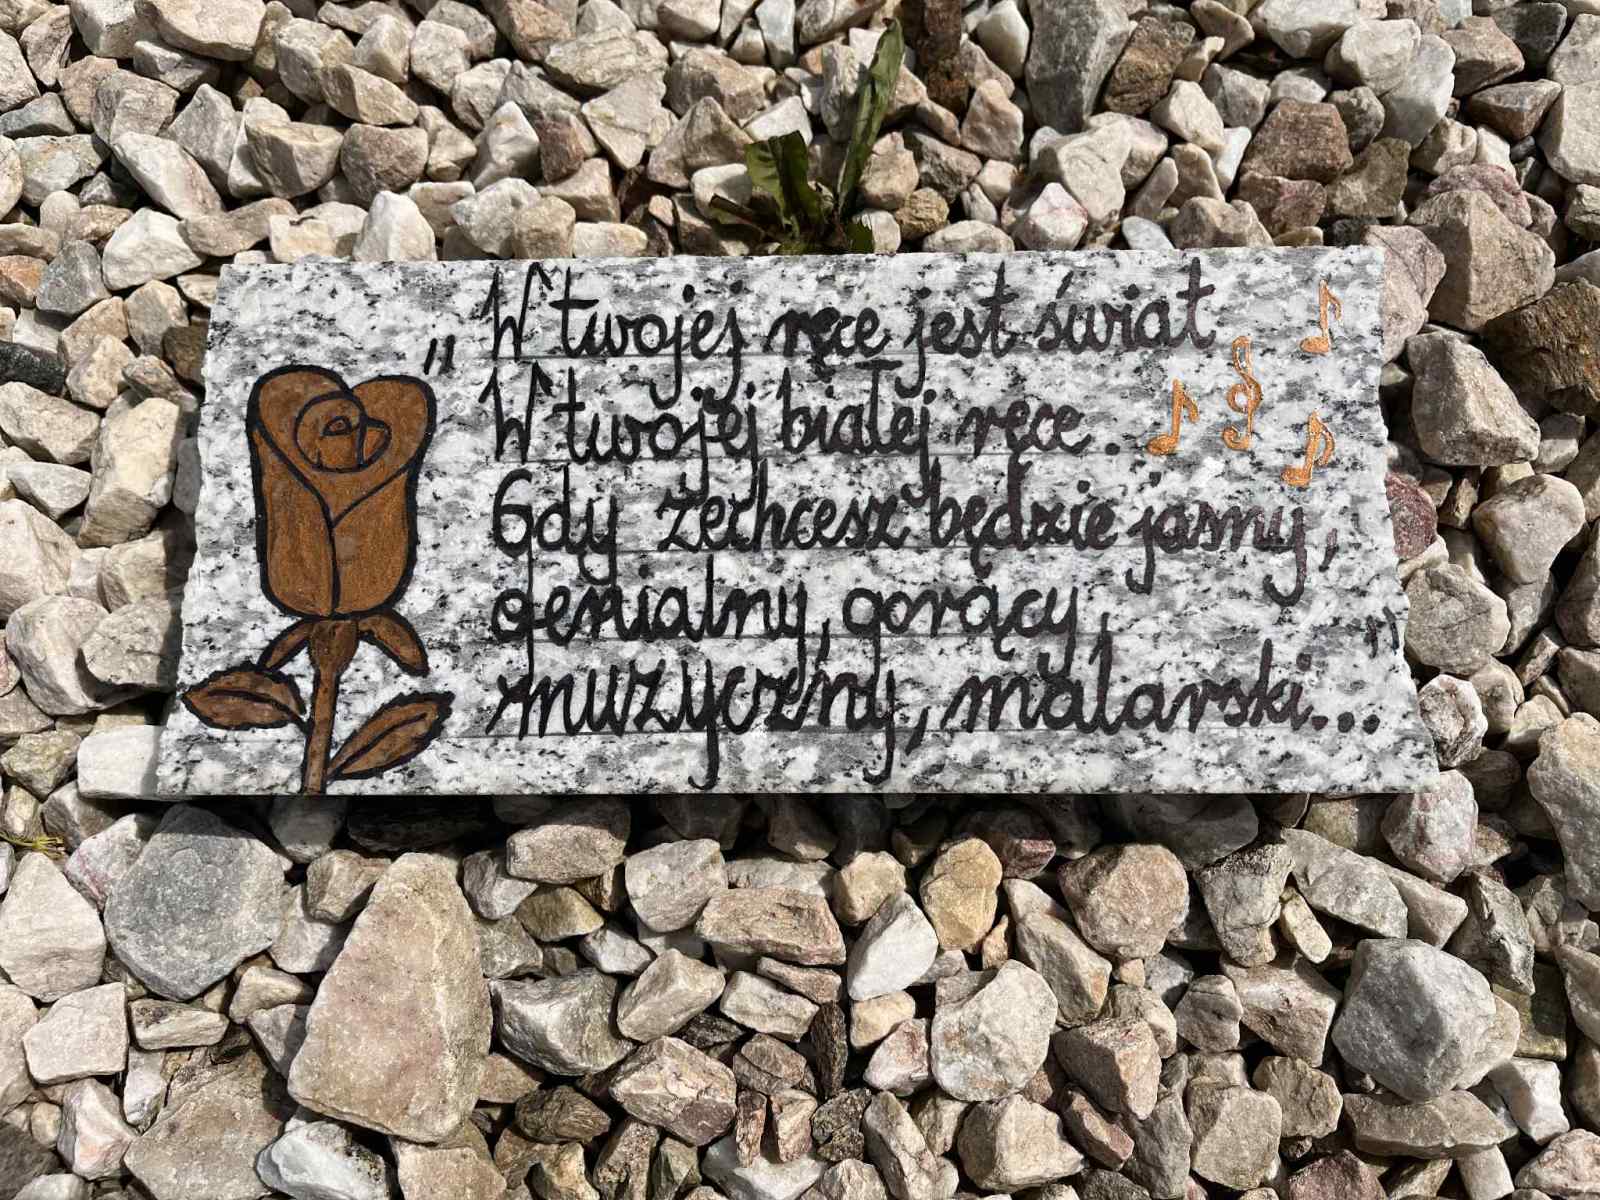 „W twojej ręce jest świat
W twojej białej ręce.
Gdy zechcesz będzie jasny,
genialny, gorący,
muzyczny, malarski..."